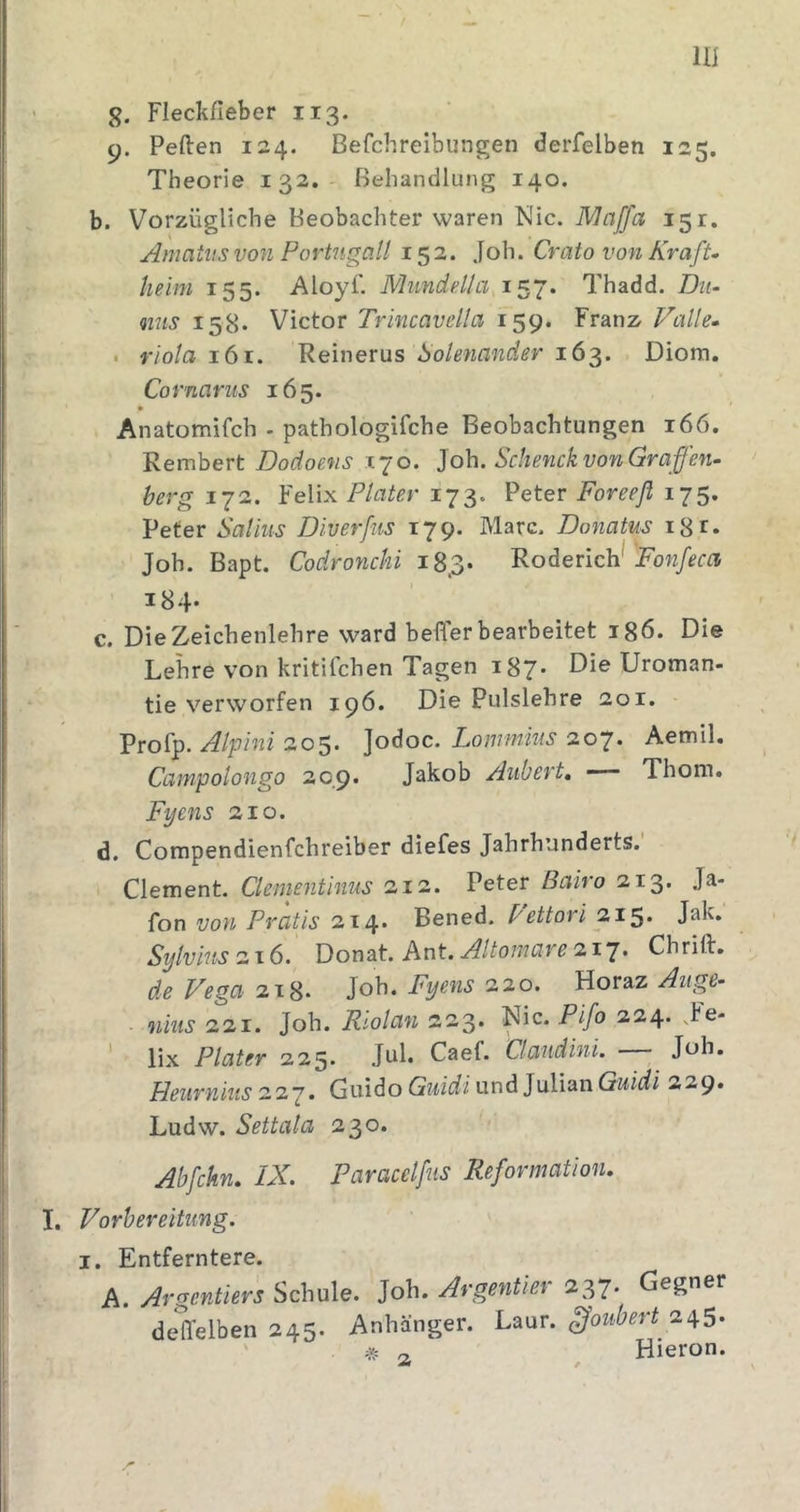 III
8. Fleckfieber 113.
9. Peſten 124. Beſchreibungen derſelben 125.
Theorie 132. Behandlung 140.
b. Vorzügliche Beobachter waren Nic. Maſſa 151.
Amatus von Portugall 152. Joh. Crato von Kraft-
heim 155. Aloyſ. Mundella 157. Thadd. Du-
nus 158. Victor Trincavella 159. Franz Valle-
riola 161. Reinerus Solenander 163. Diom.
Cornarus 165.
Anatomiſch - pathologiſche Beobachtungen 166.
Rembert Dodoens 170. Joh. Schenck von Graffen-
berg 172. Felix Plater 173. Peter Foreeſt 175.
Peter Salius Diverſus 179. Marc. Donatus 181.
Joh. Bapt. Codronchi 183. Roderich Fonſeca
184.
c. Die Zeichenlehre ward beſſer bearbeitet 186. Die
Lehre von kritiſchen Tagen 187. Die Uroman-
tie verworfen 196. Die Pulslehre 201.
Proſp. Alpini 205. Jodoc. Lommius 207. Aemil.
Campolongo 209. Jakob Aubert. — Thom.
Fyens 210.
d. Compendienſchreiber dieſes Jahrhunderts.
Clement. Clementinus 212. Peter Bairo 213. Ja-
ſon von Pratis 214. Bened. Vettori 215. Jak.
Sylvius 216. Donat. Ant. Altomare 217. Chriſt.
de Vega 218. Joh. Fyens 220. Horaz Auge-
nius 221. Joh. Riolan 223. Nic. Piſo 224. Fe-
lix Plater 225. Jul. Caeſ. Claudini. — Joh.
Heurnius 227. Guido Guidi und Julian Guidi 229.
Ludw. Settala 230.
Abſchn. IX. Paracelſus Reformation.
I. Vorbereitung.
1. Entferntere.
A. Argentiers Schule. Joh. Argentier 237. Gegner
deſſelben 245. Anhänger. Laur. Joubert 245.
* 2 Hieron.